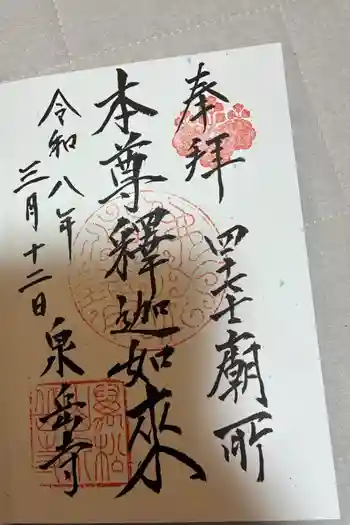 奉拝
四十七士廟所
本尊釋迦如來
令和八年
三月十二日
泉岳寺